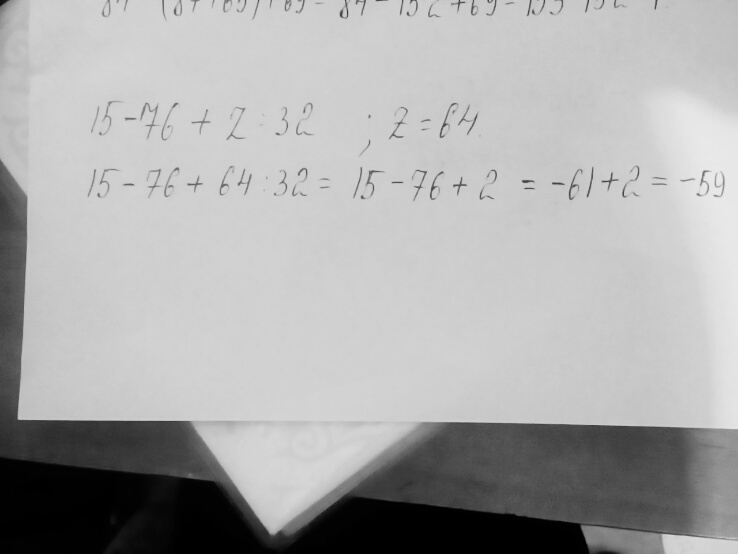 15-76+Z:32 ; Z=64
15-76+64:32= 15-76+2 = -61+2 = -59